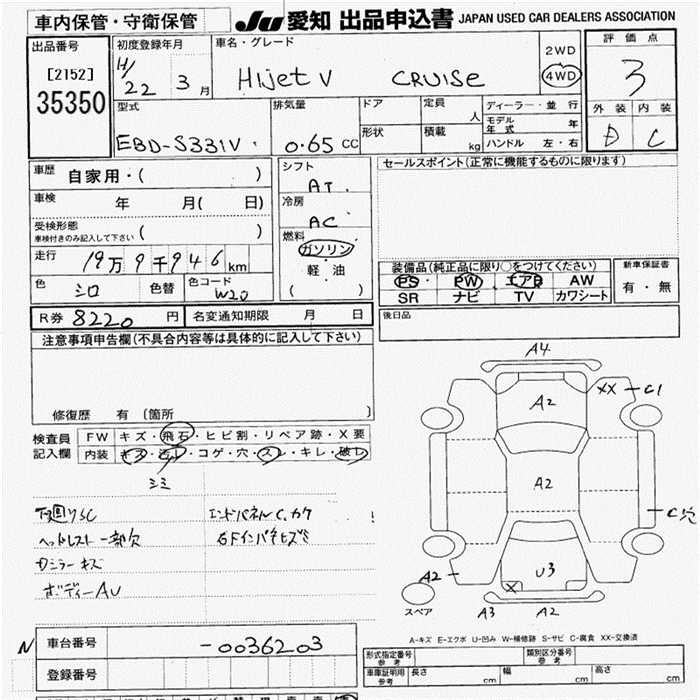 車内保管・守衛保管
JU 愛知 出品申込書 JAPAN USED CAR DEALERS ASSOCIATION
出品番号
[2152]
35350
初度登録年月
H/22 3月
車名・グレード
HIJET V CRUISE
2WD
4WD
評価点
3
外装 内装
D C
型式
EBD-S331V
排気量
0.65 CC
ドア
形状
定員
人
積載
kg
ディーラー・並行
モデル年式 年
ハンドル 左・右
車歴
自家用・( )
車検 年 月( 日)
受検形態
車検付きのみ記入して下さい ( )
走行 19万9千946km
色 シロ 色替 色コード W20
シフト
AT
冷房
AC
燃料
ガソリン
軽・油
( )
セールスポイント(正常に機能するものに限ります)
装備品(純正品に限り○をつけてください)
PS PW エアB AW
SR ナビ TV カワシート
新車保証書
有・無
R券 8220円 名変通知期限 月 日
後日品
注意事項申告欄(不具合内容等は具体的に記入して下さい)
修復歴 有〔箇所 〕
検査員
記入欄
FW キズ・飛石・ヒビ割・リペア跡・X要
内装 キズ・汚レ・コゲ・穴・スレ・キレ・破レ
シミ
下廻りSC
ヘッドレスト一部欠
Dミラーキズ
ボディーAU
エンドパネルC、カケ
A4
A2
XX C1
A2
C穴
A2
U3
X
スペア
A3 A2
A-キズ E-エクボ U-凹み W-補修跡 S-サビ C-腐食 XX-交換済
N
車台番号 -0036203
登録番号
形式指定番号
参考
類別区分番号
参考
車庫証明用
参考
長さ cm
幅 cm
高さ cm